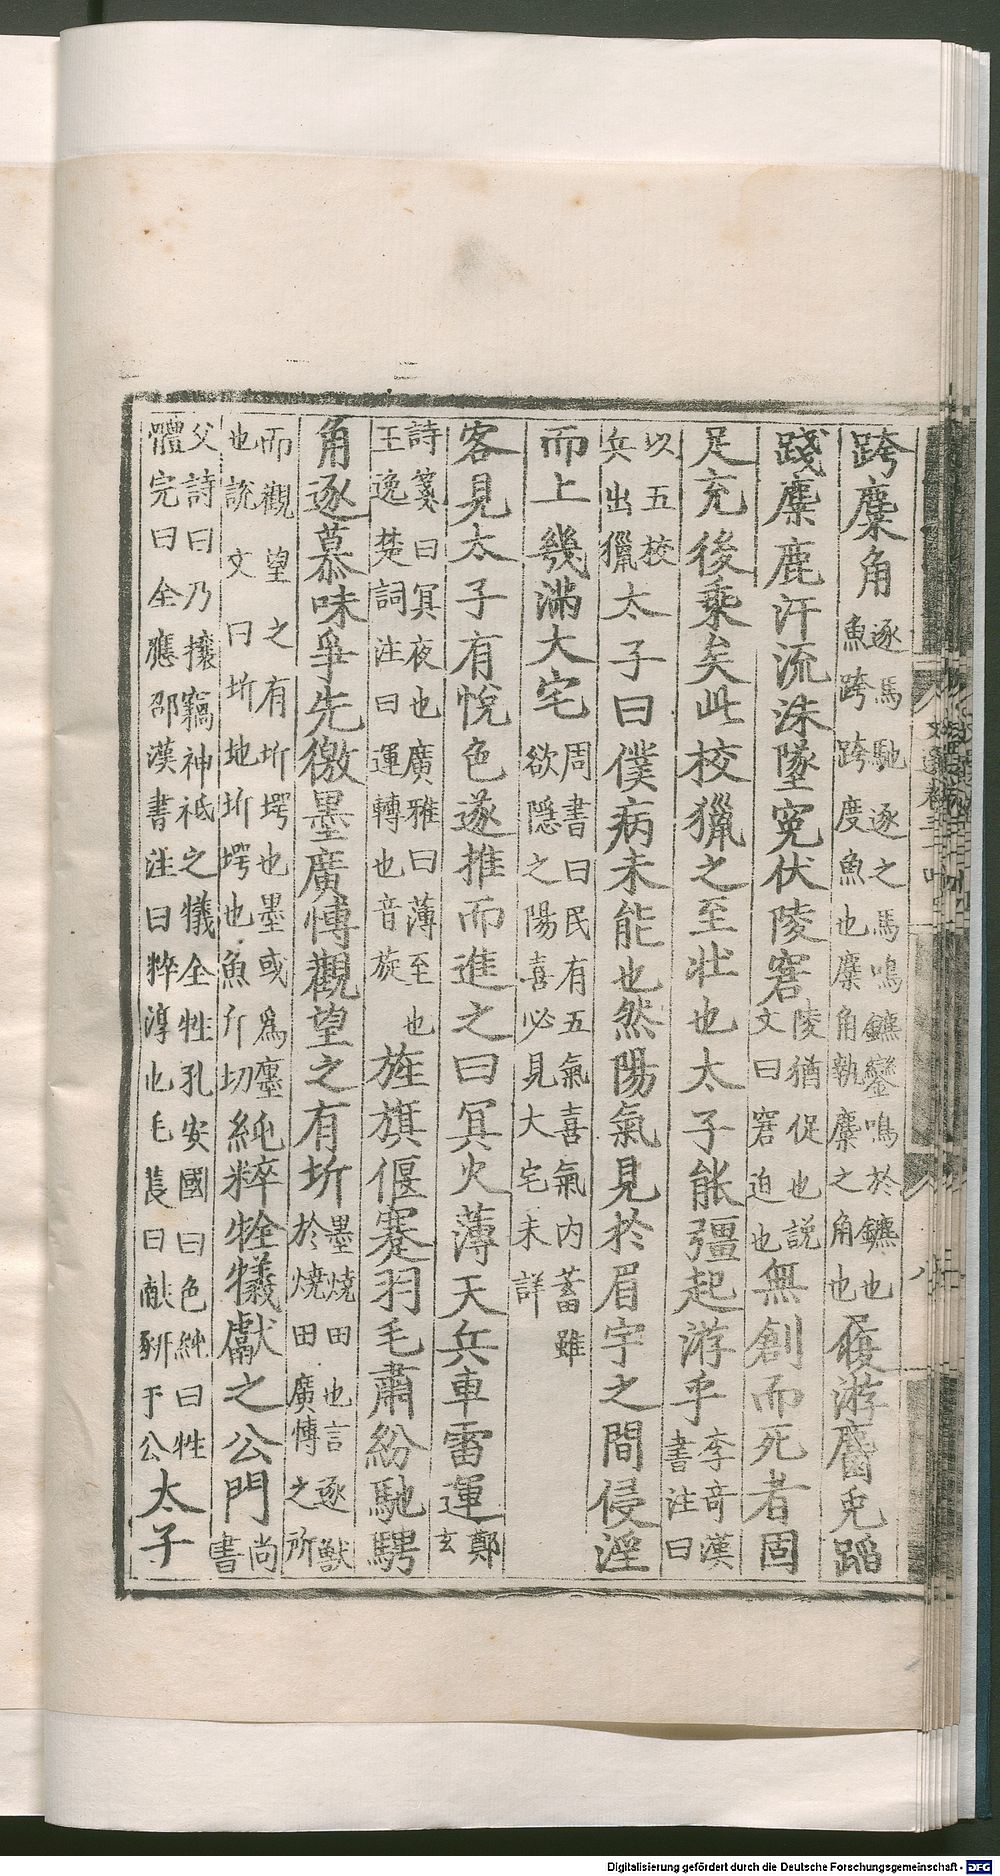 跨麋角逐馬馳逐之馬鳴鑣鑾鳴於鑣也魚跨跨度魚也麋角執麋之角也履游麕兎蹈
踐麋鹿汗流沬墜寃伏陵窘陵猶促也説文曰窘迫也無創而死者固
足充後乘矣此校獵之至壯也太子能彊起游乎李竒漢書注曰
以五校兵出獵太子曰僕病未能也然陽氣見於眉宇之間侵淫
而上幾滿大宅周書曰民有五氣喜氣内蓄雖欲隠之陽喜必見大宅未詳
客見太子有悅色遂推而進之曰冥火薄天兵車雷運鄭玄
詩箋曰冥夜也廣雅曰薄至也王逸楚詞注曰運轉也音旋旌旗偃蹇羽毛肅紛馳騁
角逐慕味爭先徼墨廣愽觀望之有圻墨燒田也言逐獸於燒田廣愽之所
而觀望之有圻堮也墨或爲㙻也説文曰圻地圻堮也魚斤切純粹牷犧獻之公門尚書
父詩曰乃攘竊神祗之犧全牲孔安國曰色純曰牲體完曰全應邵漢書注曰粹淳也毛萇曰献豜于公太子
Digitalisierung gefördert durch die Deutsche Forschungsgemeinschaft - DFG